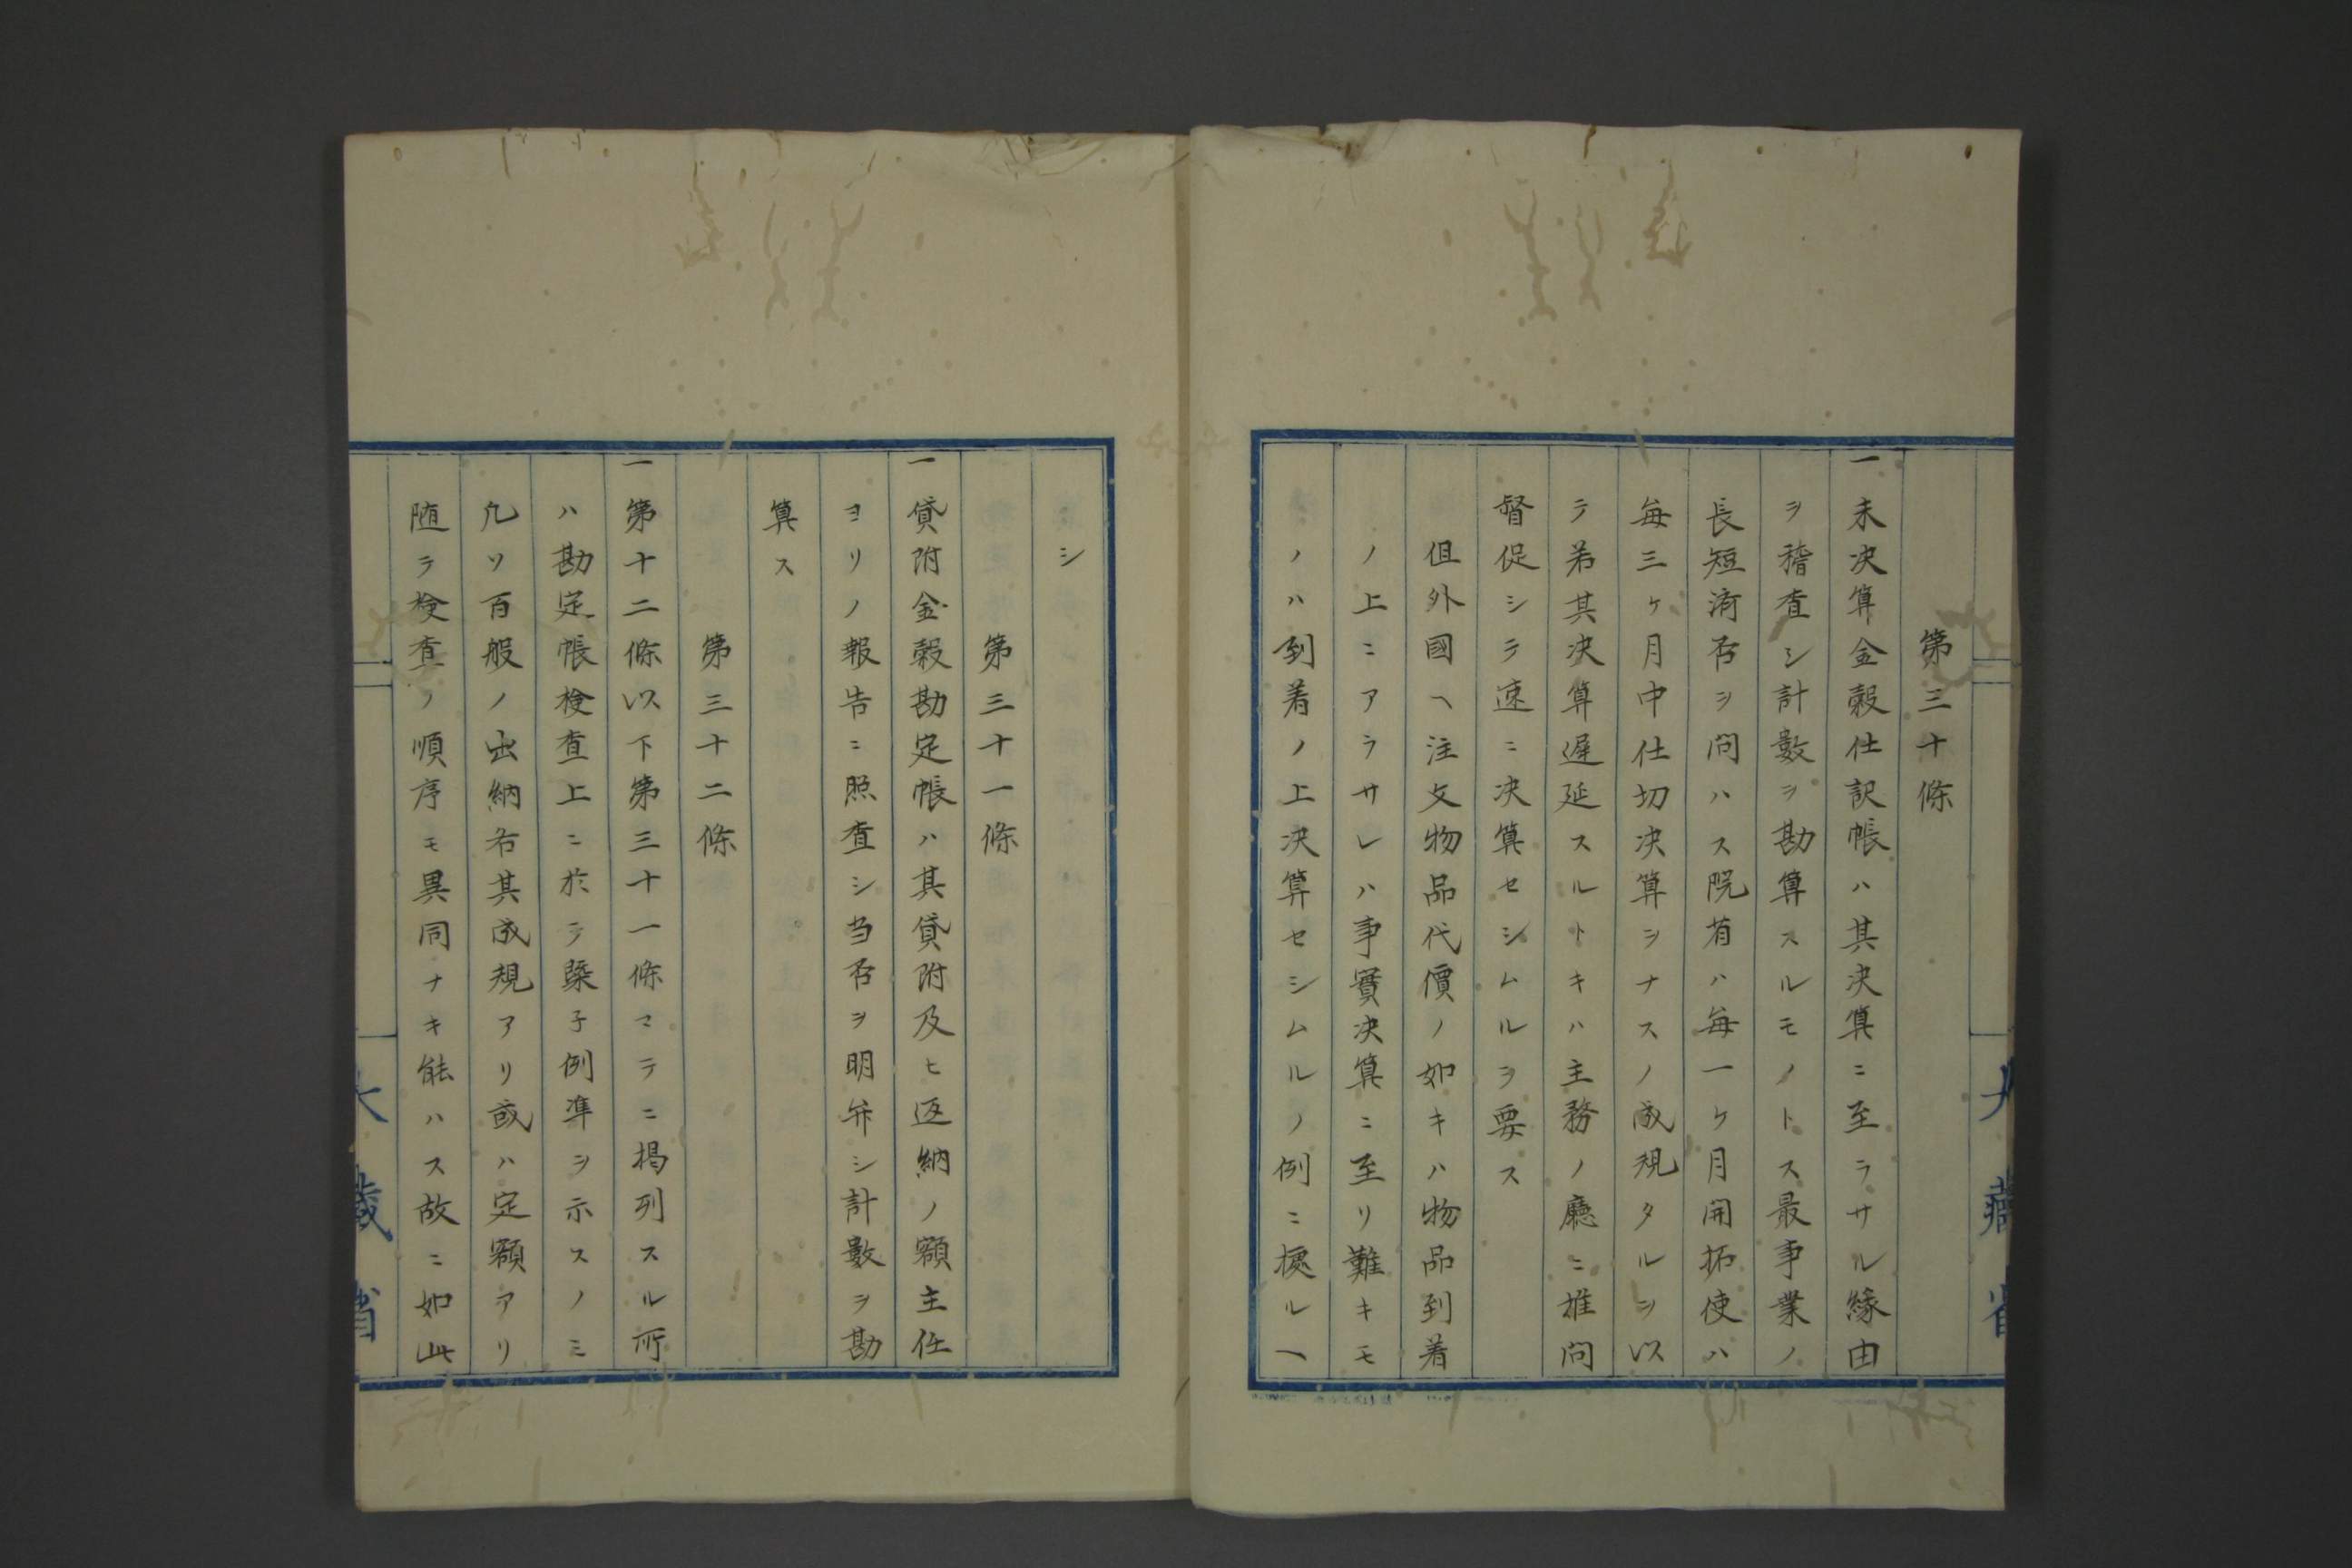 第三十條
一未決算金穀仕訳帳ハ其決算ニ至ラサル縁由
ヲ稽査シ計數ヲ勘算スルモノトス最事業ノ
長短済否ヲ問ハス院省ハ毎一ケ月開拓使ハ
毎三ケ月中仕切決算ヲナスノ成規タルヲ以
テ若其決算遅延スルトキハ主務ノ廳ニ推問
督促シテ速ニ決算セシムルヲ要ス
但外國ヘ注文物品代價ノ如キハ物品到着
ノ上ニアラサレハ事實決算ニ至リ難キモ
ノハ到着ノ上決算セシムルノ例ニ據ルヘ
シ
第三十一條
一貸附金穀勘定帳ハ其貸附及ヒ返納ノ額主任
ヨリノ報告ニ照査シ当否ヲ明弁シ計數ヲ勘
算ス
第三十二條
一第十二條以下第三十一條マテニ掲列スル所
ハ勘定帳検査上ニ於テ槩子例準ヲ示スノミ
凡ソ百般ノ出納各其成規アリ或ハ定額アリ
随テ検査ノ順序モ異同ナキ能ハス故ニ如此
大藏省